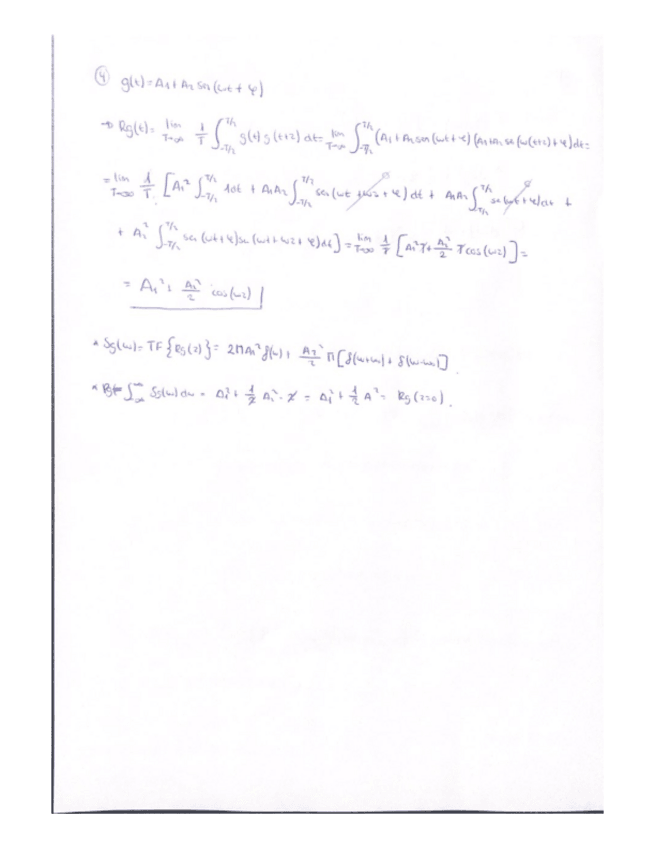 ④ g(t) = A₁ + A₂ sen(ωt + φ)
→ Rg(t) = lim T→∞ 1/T ∫_{-T/2}^{T/2} g(t) g(t+z) dt = lim T→∞ ∫_{-T/2}^{T/2} (A₁ + A₂ sen(ωt + φ)) (A₁ + A₂ sen(ω(t+z) + φ)) dt =
= lim T→∞ 1/T [A₁² ∫_{-T/2}^{T/2} 1dt + A₁A₂ ∫_{-T/2}^{T/2} sen(ωt + ωz + φ) dt + A₁A₂ ∫_{-T/2}^{T/2} sen(ωt + φ) dt +
+ A₂² ∫_{-T/2}^{T/2} sen(ωt + φ) sen(ωt + ωz + φ) dt] = lim T→∞ 1/T [A₁² T + A₂²/2 T cos(ωz)] =
= A₁² + A₂²/2 cos(ωz)
* Sg(ω) = TF{Rg(z)} = 2πA₁² δ(ω) + A₂²/2 π[δ(ω+ω₀) + δ(ω-ω₀)]
* Pg = ∫_{-∞}^{∞} Sg(ω) dω = A₁² + 1/2 A₂² · 2 = A₁² + 1/2 A² = Rg(z=0).